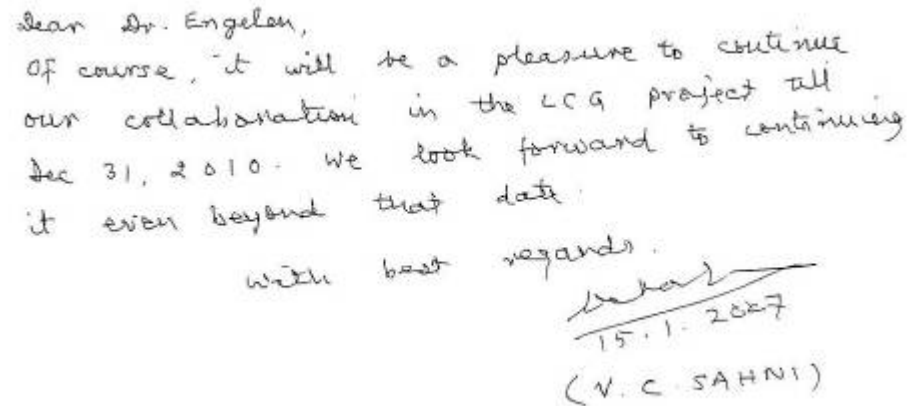 Dear Dr. Engelen,
Of course, it will be a pleasure to continue
our collaboration in the LCG project till
Dec 31, 2010. We look forward to continuing
it even beyond that date.
with best regards.
15.1.2007
(V. C. SAHNI)